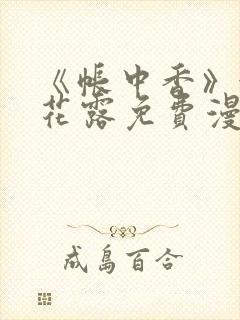 《帐中香》
花露免费漫
成島百合